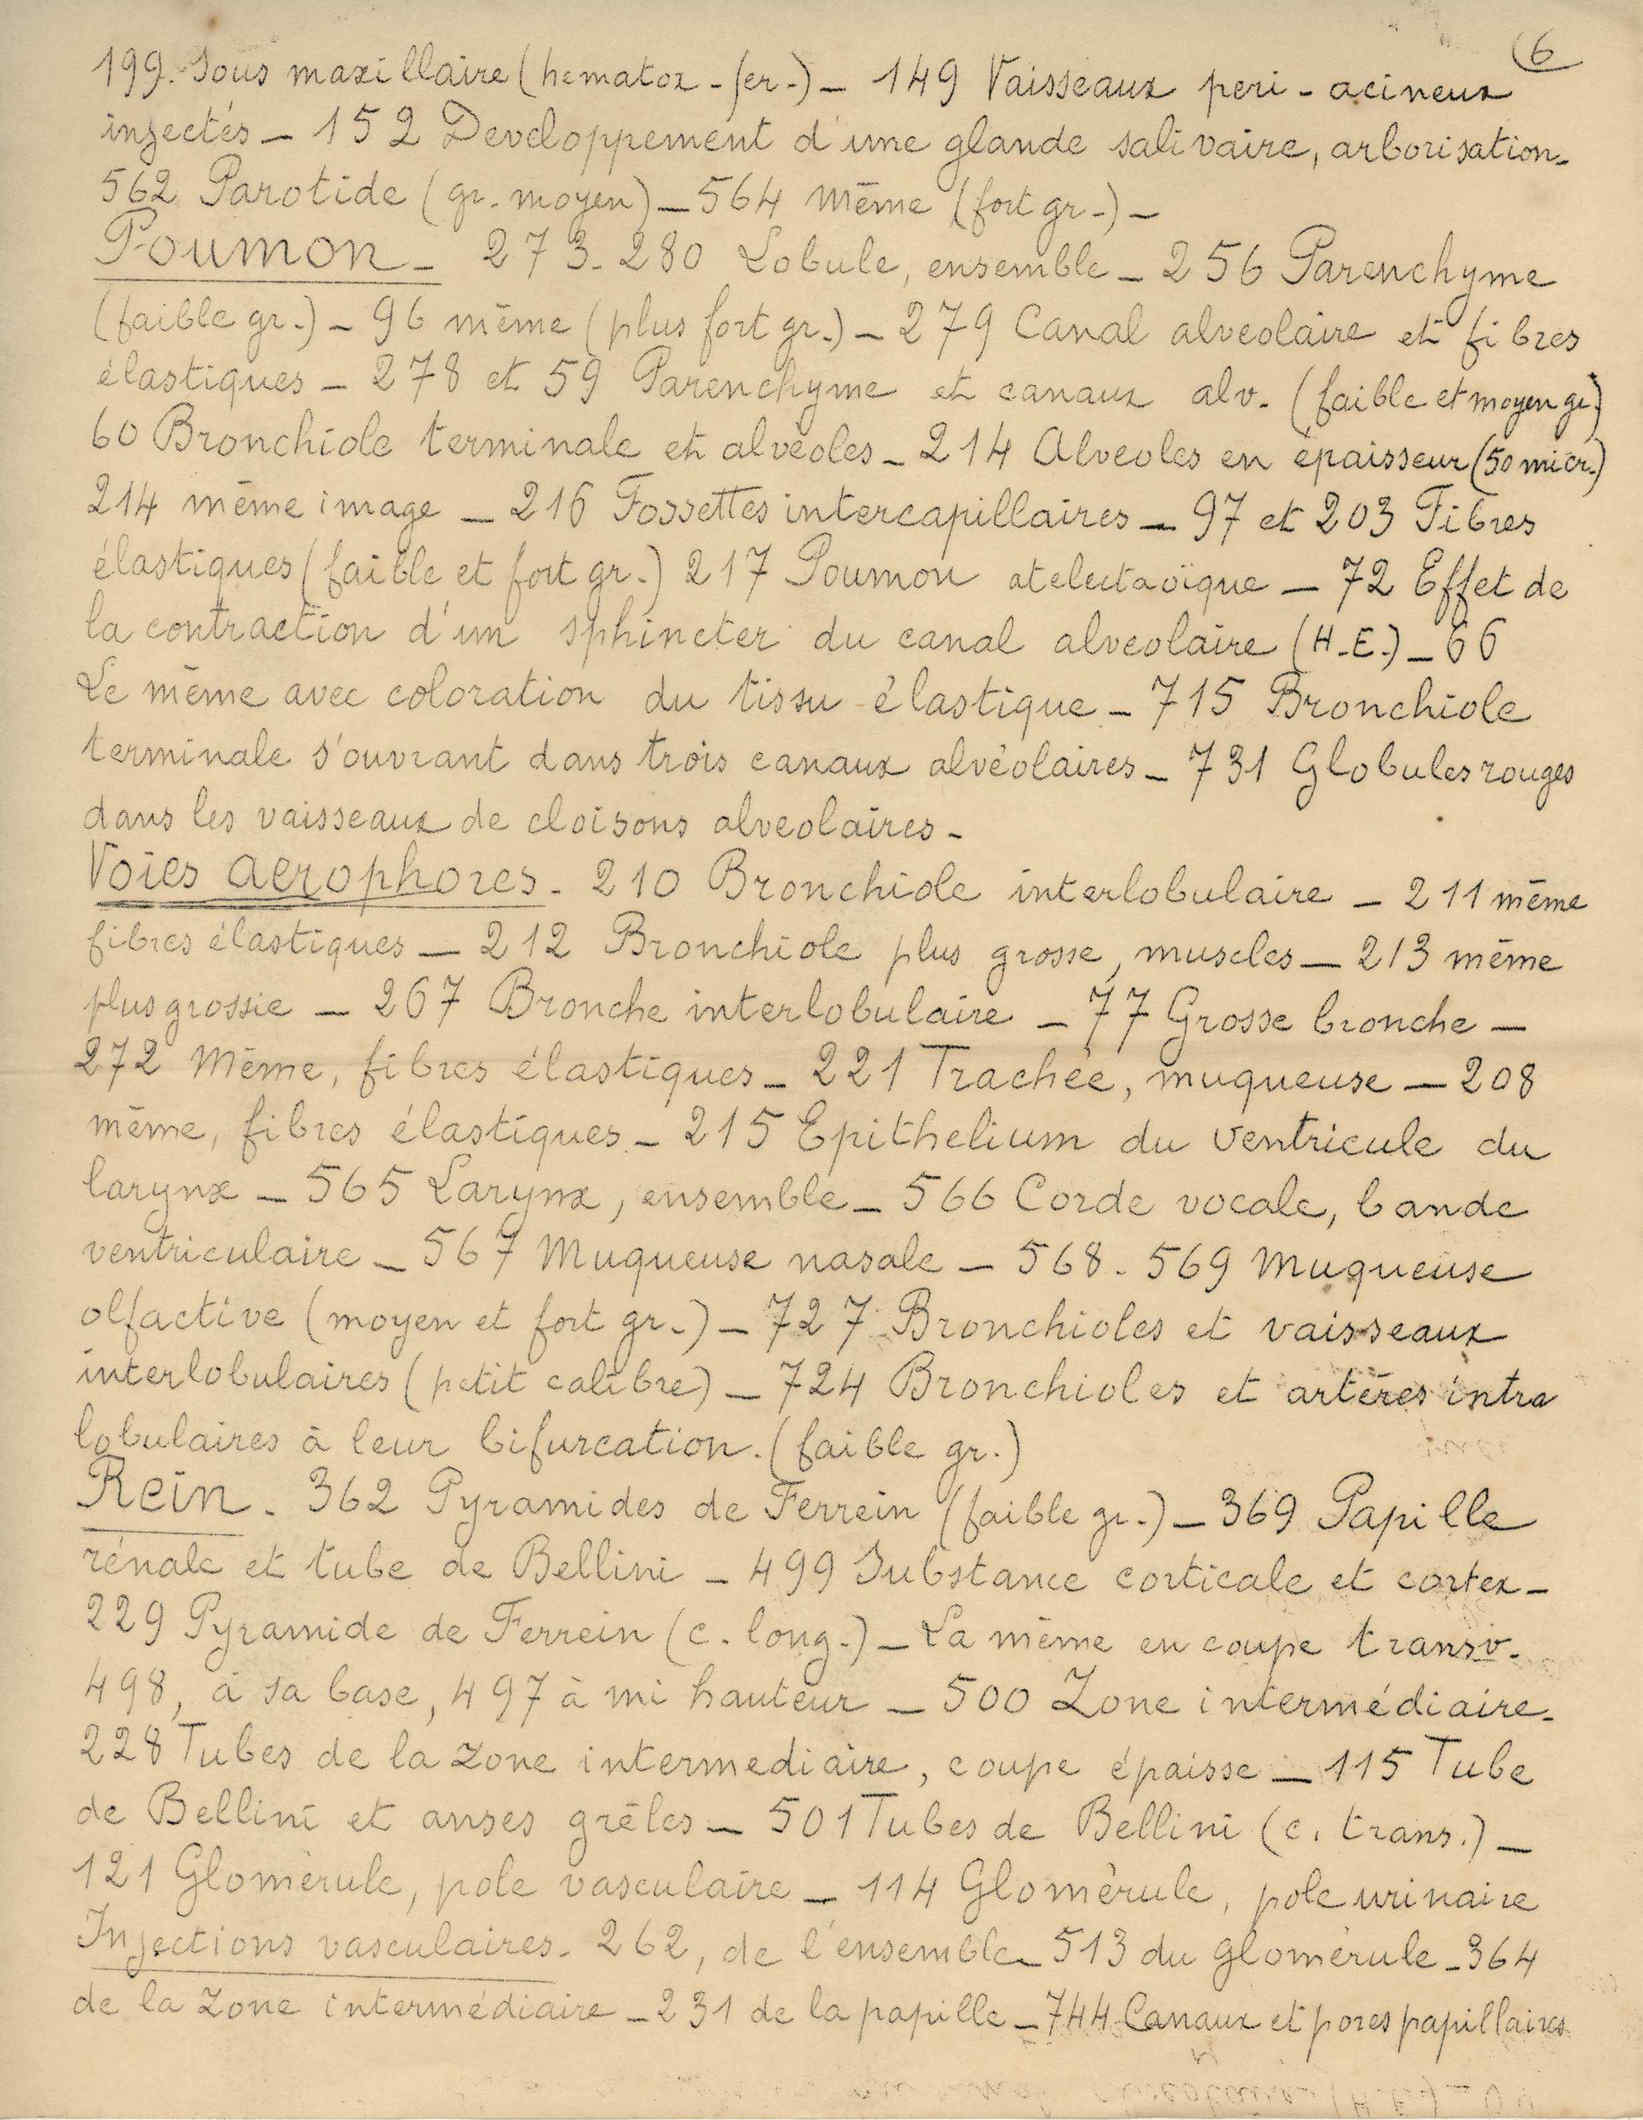 6
199. Sous maxillaire (hematox - fer.) _ 149 Vaisseaux peri - acineux
injectés _ 152 Developpement d'une glande salivaire, arborisation _
562 Parotide (gr. moyen) _ 564 même (fort gr.) _
Poumon _ 273 - 280 Lobule, ensemble _ 256 Parenchyme
(faible gr.) _ 96 même (plus fort gr.) _ 279 Canal alveolaire et fibres
élastiques _ 278 et 59 Parenchyme et canaux alv. (faible et moyen gr.)
60 Bronchiole terminale et alvéoles _ 214 Alveoles en épaisseur (50 micr.)
214 même image _ 216 Fossettes intercapillaires _ 97 et 203 Fibres
élastiques (faible et fort gr.) 217 Poumon _ 72 Effet de
la contraction d'un sphincter du canal alveolaire (H.E.) _ 66
Le même avec coloration du tissu élastique _ 715 Bronchiole
terminale s'ouvrant dans trois canaux alvéolaires _ 731 Globules rouges
dans les vaisseaux de cloisons alveolaires _
Voies aerophores - 210 Bronchiole interlobulaire _ 211 même
fibres élastiques _ 212 Bronchiole plus grosse, muscles _ 213 même
plus grossie _ 267 Bronche interlobulaire _ 77 Grosse bronche _
272 Même, fibres élastiques _ 221 Trachée, muqueuse _ 208
même, fibres élastiques _ 215 Epithelium du ventricule du
larynx _ 565 Larynx, ensemble _ 566 Corde vocale, bande
ventriculaire _ 567 Muqueuse nasale _ 568 - 569 Muqueuse
olfactive (moyen et fort gr.) _ 727 Bronchioles et vaisseaux
interlobulaires (petit calibre) _ 724 Bronchioles et artères intra
lobulaires à leur bifurcation. (faible gr.)
Rein - 362 Pyramides de Ferrein (faible gr.) _ 369 Papille
rénale et tube de Bellini _ 499 Substance corticale et cortex _
229 Pyramide de Ferrein (c. long.) _ La même en coupe transv.
498, à sa base, 497 à mi hauteur _ 500 Zone intermédiaire _
228 Tubes de la zone intermediaire, coupe épaisse _ 115 Tube
de Bellini et anses grêles _ 501 Tubes de Bellini (c. trans.) _
121 Glomérule, pole vasculaire _ 114 Glomérule, pole urinaire
Injections vasculaires - 262, de l'ensemble _ 513 du glomérule _ 364
de la zone intermédiaire _ 231 de la papille _ 744 Canaux et pores papillaires